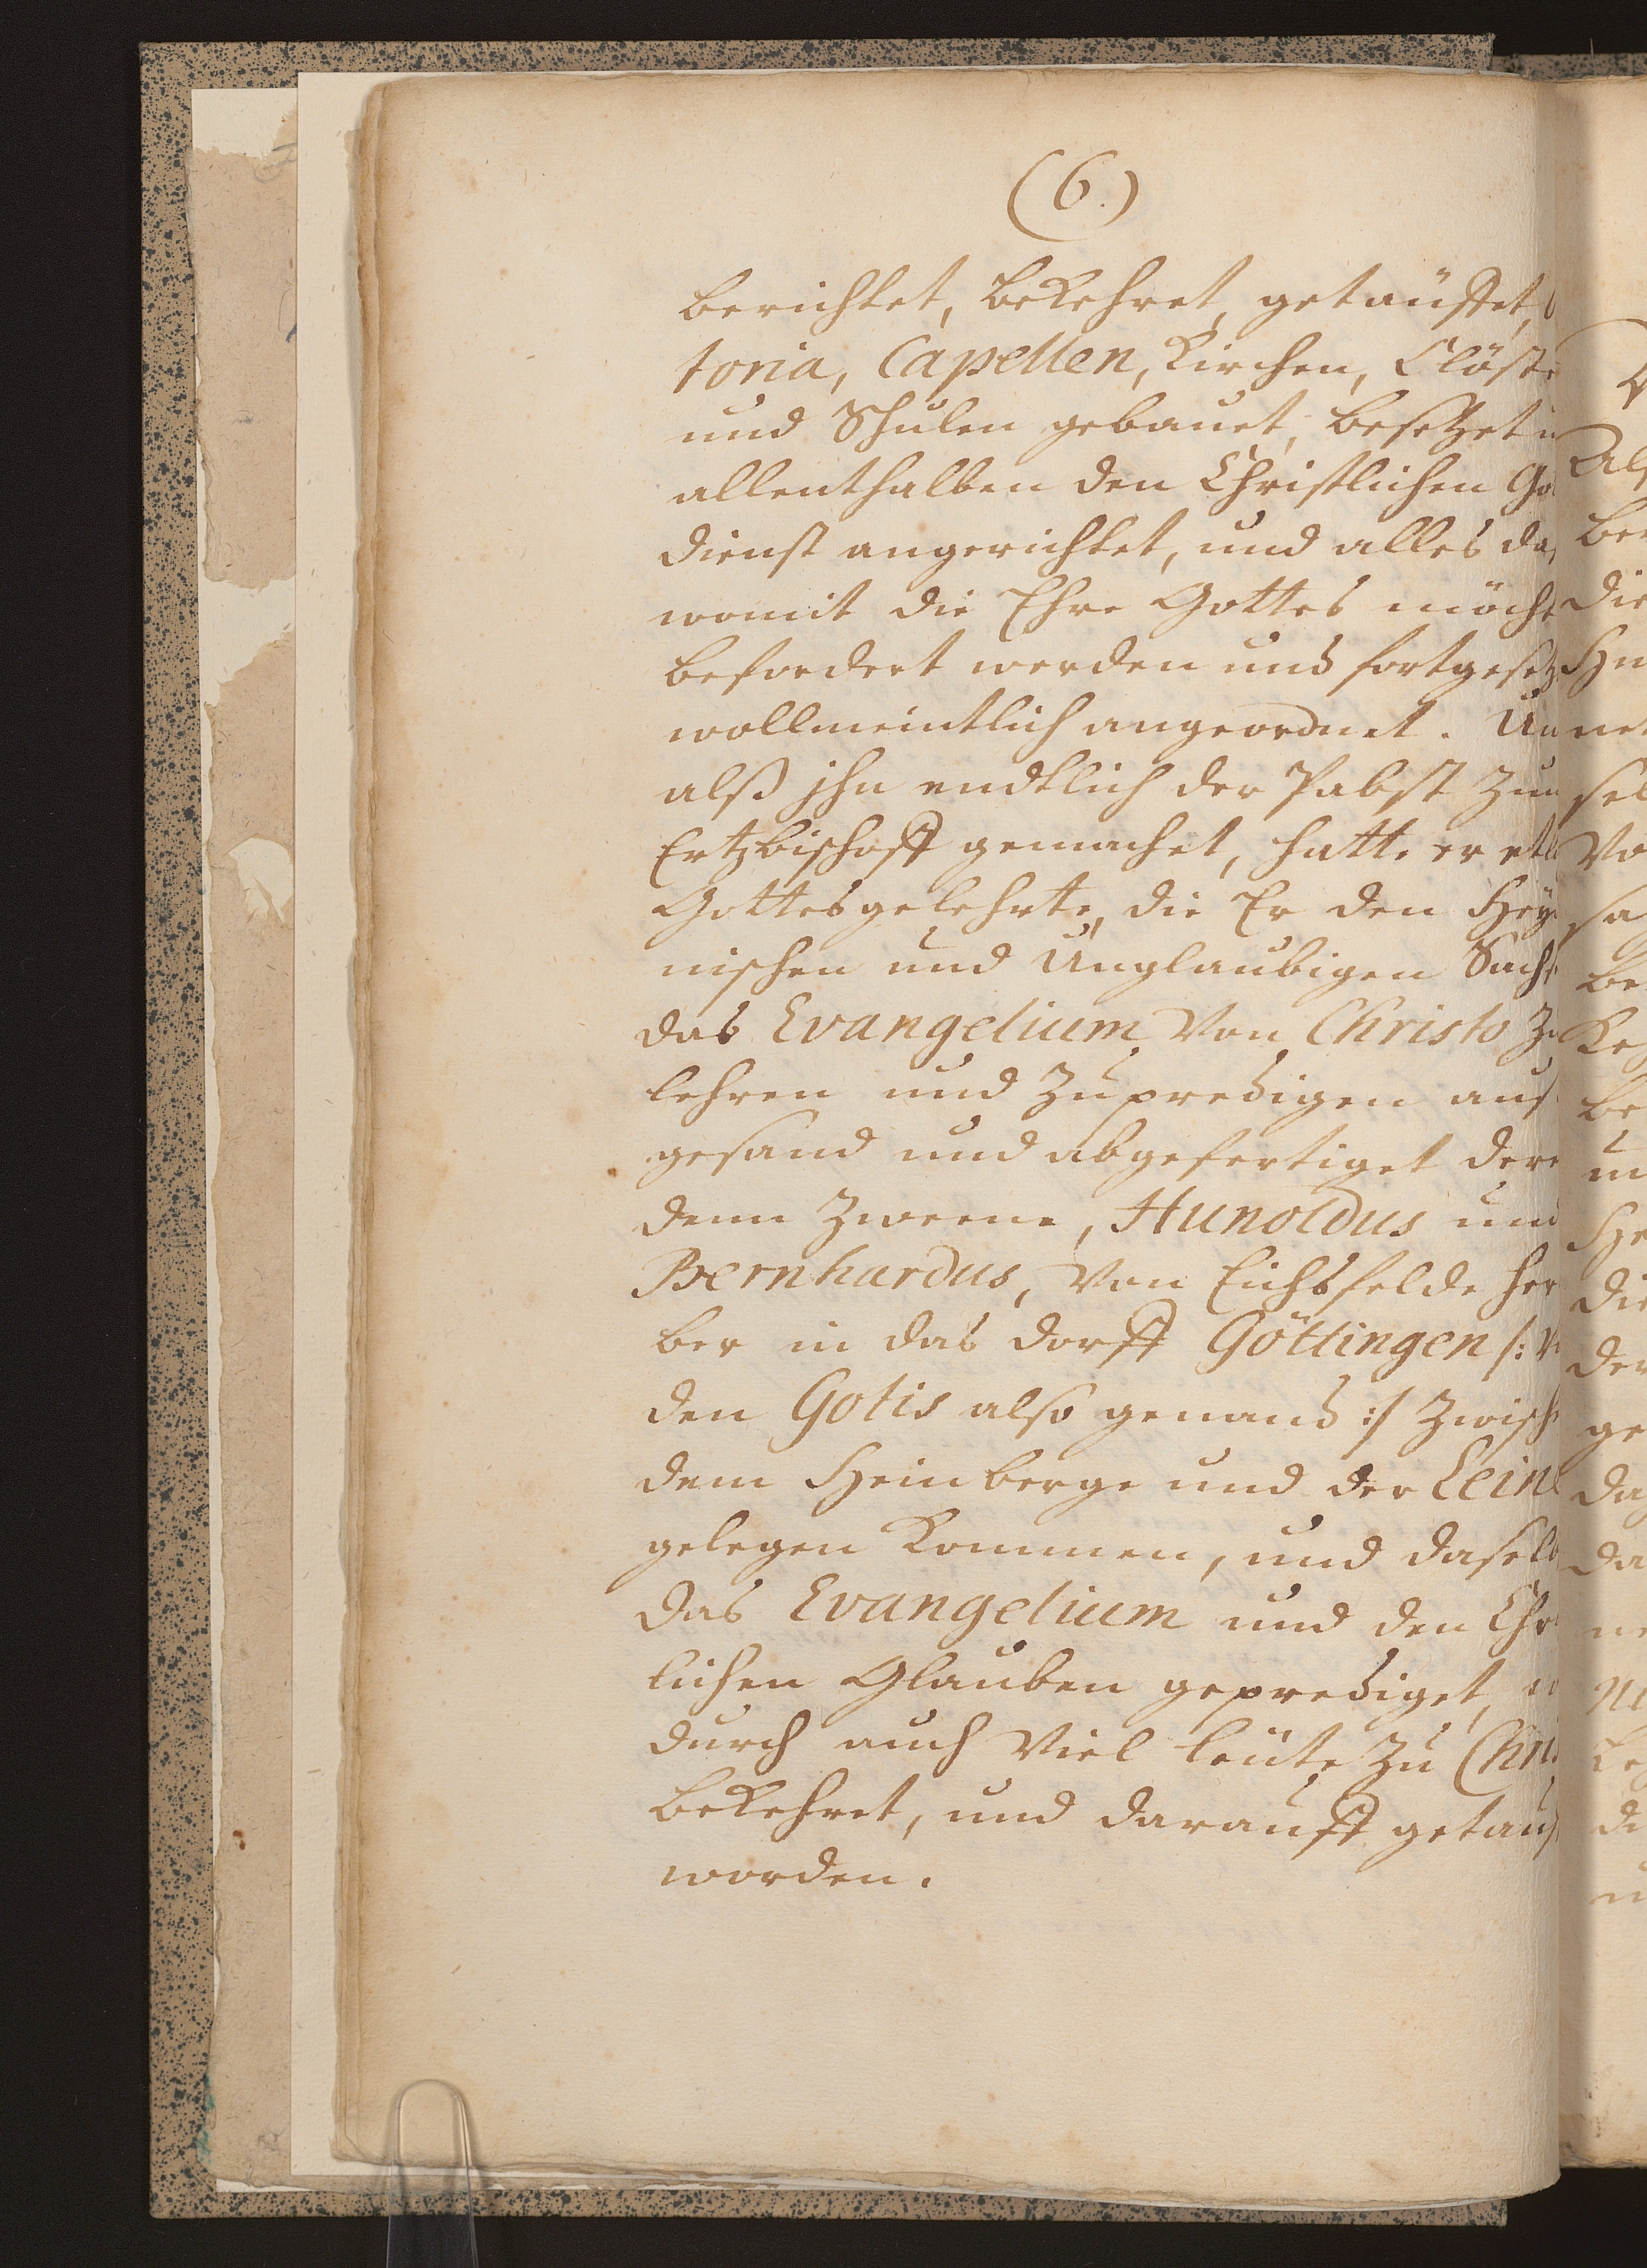 (6.)
berichtet, bekehret, getäuffet,
toria, Capellen, Kirchen, Clöste
und Schulen gebauet, besetzet u
allenthalben den Christlichen Go
dienst angerichtet, und alles da
womit die Ehre Gottes möcht
befordert werden und fortgesetz
wollmeintlich angeordnet. Un
alß jhn endtlich der Pabst zum
Ertzbischofft gemachet, hatte er etl
Gottesgelehrte, die Er den Hey
nischen und Unglaubigen Sachs
das Evangelium von Christo zu
lehren und zu predigen aus
gesand und abgefertiget dere
denn Zweene, Hunoldus und
Bernhardus, von Eichsfelde her
ber in das dorff Göttingen /: v
den Gotis also genand :/ zwisch
dem Heinberge und der Leine
gelegen kommen, und daselb
das Evangelium und den Chr
lichen Glauben geprediget,
durch auch viel leute zu Chri
bekehret, und darauff getauf
worden.
Al
ber
die
Hu
net
sel
Vo
sa
be
Ke
be
un
He
die
der
ge
da
da
ne